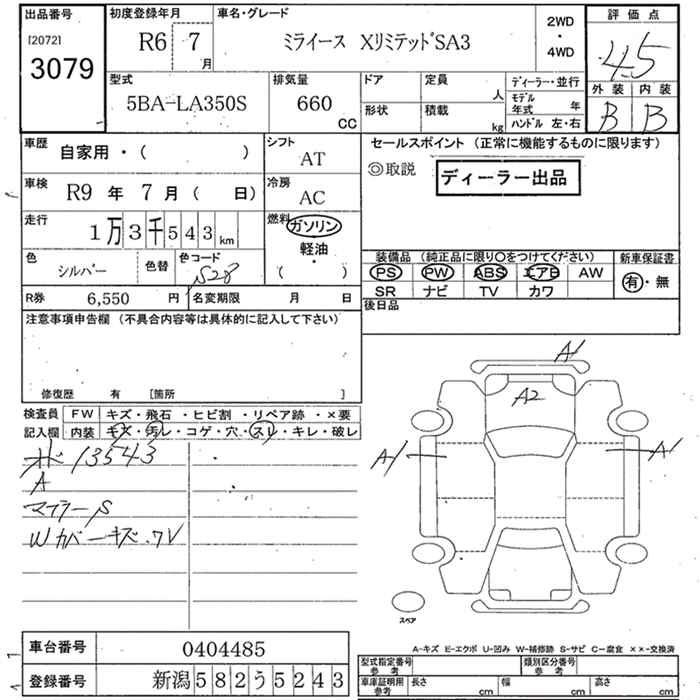 出品番号
[2072]
3079
初度登録年月
R6 7
月
車名・グレード
ミライース XリミテッドSA3
2WD
・
4WD
評価点
4.5
外装 内装
B B
型式
5BA-LA350S
排気量
660
CC
ドア 定員
人
形状 積載
kg
ディーラー・並行
モデル
年式 年
ハンドル 左・右
車歴
自家用・( )
シフト
AT
車検
R9 年 7 月 ( 日)
冷房
AC
走行
1万3千543km
燃料
ガソリン
軽油・
( )
色
シルバー
色替
色コード
S28
R券 6,550 円
名変期限 月 日
セールスポイント (正常に機能するものに限ります)
◎取説
ディーラー出品
装備品 (純正品に限り〇をつけてください)
PS PW ABS エアB AW
SR ナビ TV カワ
新車保証書
有・無
後日品
注意事項申告欄 (不具合内容等は具体的に記入して下さい)
修復歴 有 [箇所 ]
検査員
記入欄
FW キズ・飛石・ヒビ割・リペア跡・×要
内装 キズ・汚レ・コゲ・穴・スレ・キレ・破レ
13543
A
マフラーS
Wカバーキズ.
A1
A2
A1
A1
スペア
A-キズ E-エクボ U-凹み W-補修跡 S-サビ C-腐食 ××-交換済
車台番号 0404485
登録番号 新潟582う5243
型式指定番号
参考
類別区分番号
参考
車庫証明用
参考
長さ cm 幅 cm 高さ cm